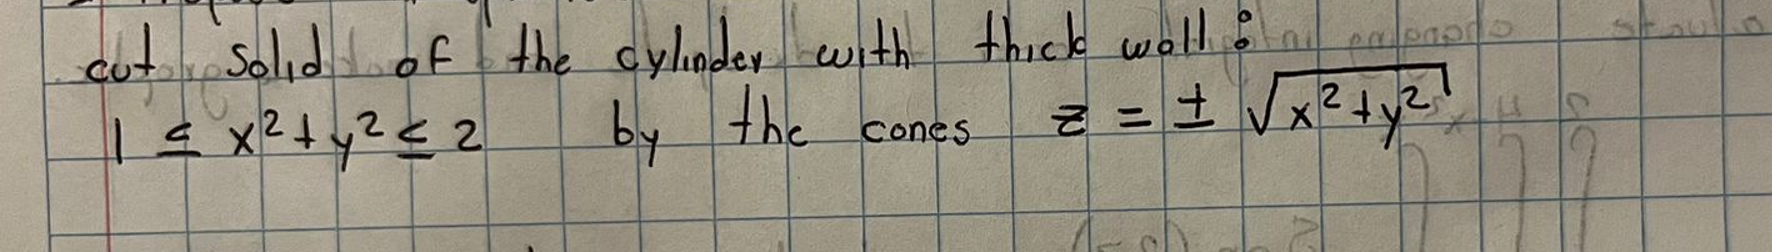 cut solid of the cylinder with thick wall:
1 ≤ x² + y² ≤ 2 by the cones z = ± √x² + y²